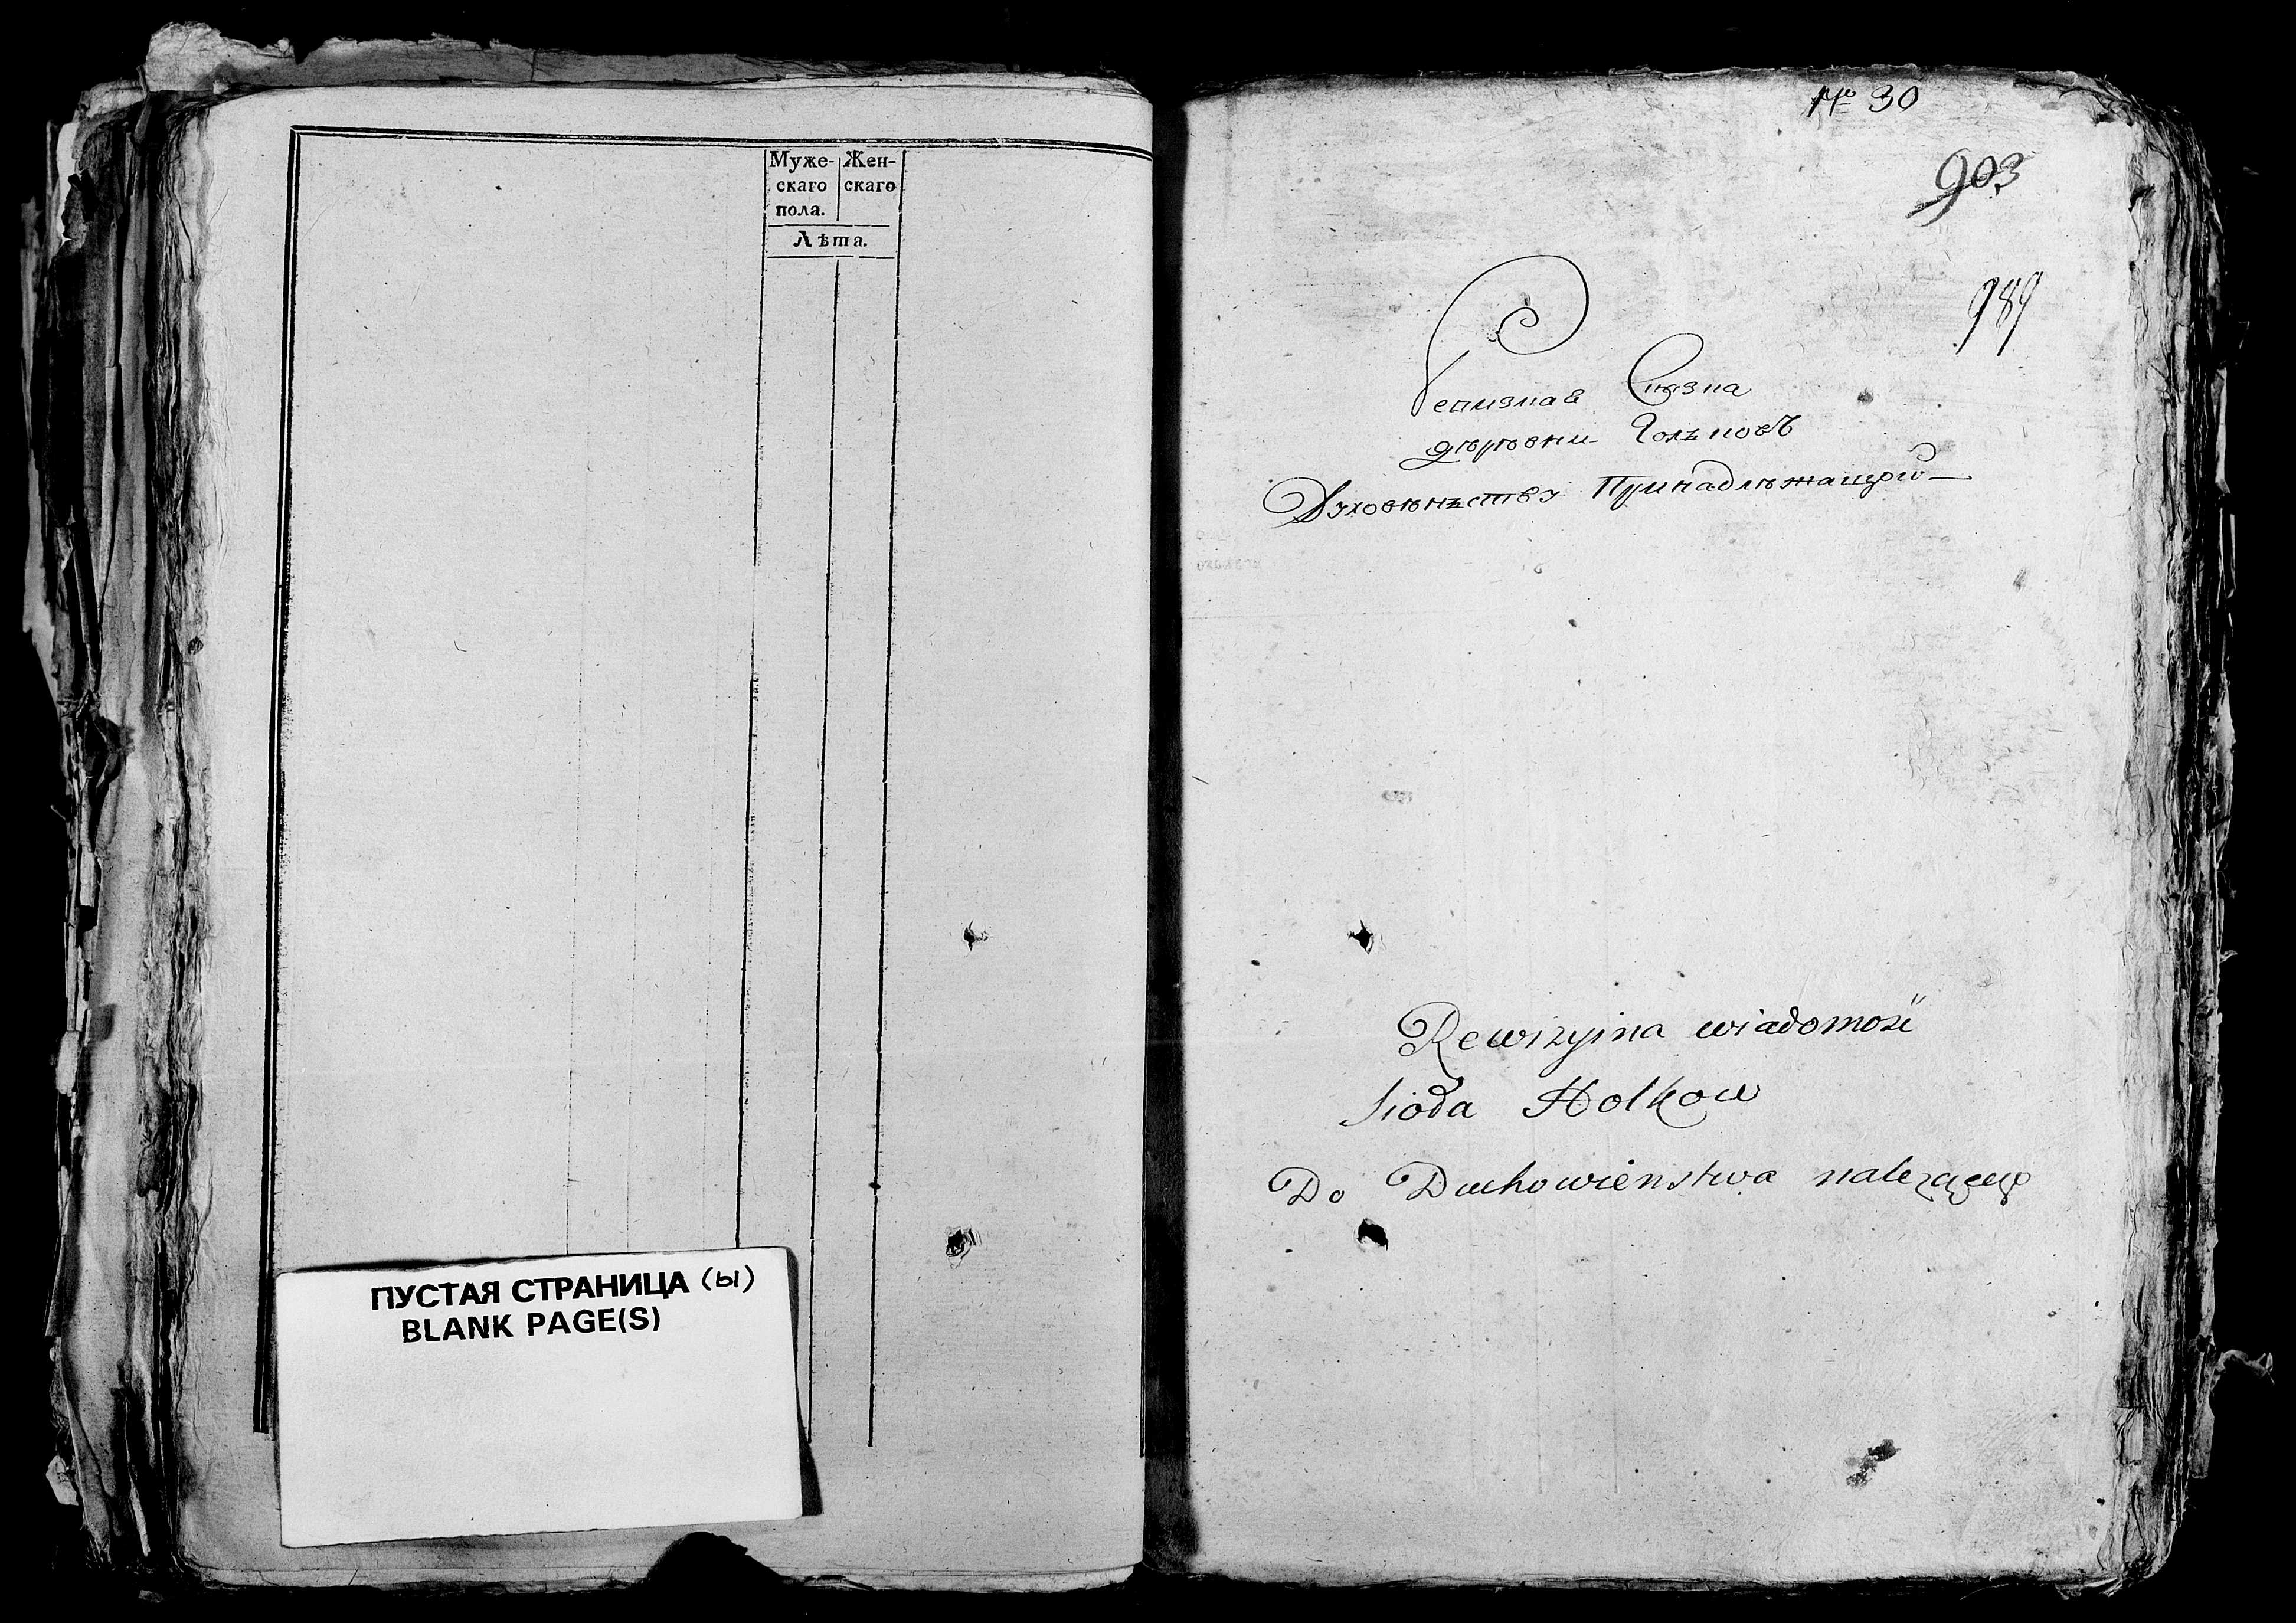 Муже- Жен-
скаго скаго
пола.
Лѣта.
ПУСТАЯ СТРАНИЦА (ы)
BLANK PAGE(S)
№ 30
903
989
Ревизная Сказка
дѣрѣвни Голъковъ
Духовѣнъству Принадлѣжащой
Rewizyina wiadomość
sioła Holkow
Do Duchowienstwa nalezącego